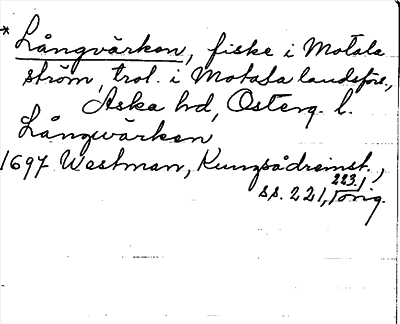 * Långvärken, fiske i Motala
ström, trol. i Motala landsförs.,
Aska hd, Österg. l.
Långwärken
1697 Westman, Kungsådreinst.,
ss. 221, 223. / orig.